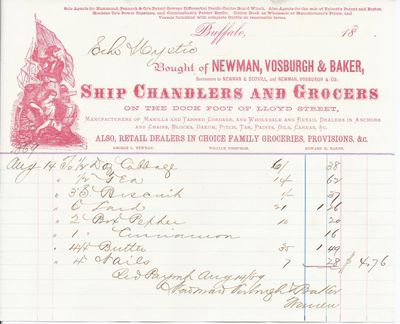 Sole Agents for Hammond, Penrock & Co's Patent Geared Differential Pacific Centre Board Winch, Also Agents for the sale of Tulley's Patent and Boston
Machine Co's Power Capstans, and Cunningham's Patent Reefer. Cotton Duck at Wholesale at Manufacturer's Prices, and
Vessels furnished with complete Outfits on reasonable terms.
Buffalo, 18
Schr Majestic
Bought of NEWMAN, VOSBURGH & BAKER,
Successors to NEWMAN & SCOVILL, and NEWMAN, VOSBURGH & CO.
SHIP CHANDLERS AND GROCERS
ON THE DOCK FOOT OF LLOYD STREET,
MANUFACTURERS OF MANILLA AND TARRED CORDAGE, AND WHOLESALE AND RETAIL DEALERS IN ANCHORS
AND CHAINS, BLOCKS, OAKUM, PITCH, TAR, PAINTS, OILS, CANVAS, &c.
ALSO, RETAIL DEALERS IN CHOICE FAMILY GROCERIES, PROVISIONS, &c.
1869 GEORGE L. NEWMAN. WILLIAM VOSBURGH. HOWARD H. BAKER.
Aug 14 To ½ Doz Cabbage 6/ 38
" ½ Tea 62
" Biscuit 37
" 6 Lard 21 1 26
" 2 Box Pepper 10 20
" 1 " Cinnamon 16
" Butter 35 1 49
" 4 Nails 7 28 $ 4.76
Recd Paymt Aug 14/69
Newman Vosburgh & Baker